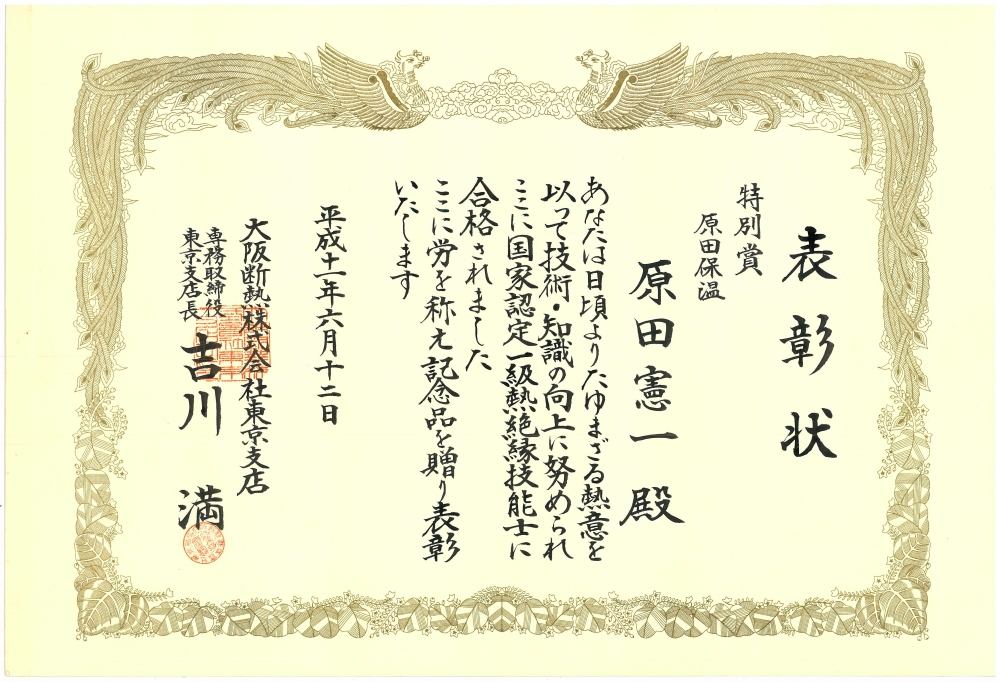 表彰状
特別賞
原田保温
原田憲一殿
あなたは日頃よりたゆまざる熱意を
以って技術・知識の向上に努められ
ここに国家認定一級熱絶縁技能士に
合格されました
ここに労を称え記念品を贈り表彰
いたします
平成十一年六月十二日
大阪断熱株式会社東京支店
専務取締役
東京支店長
吉川満